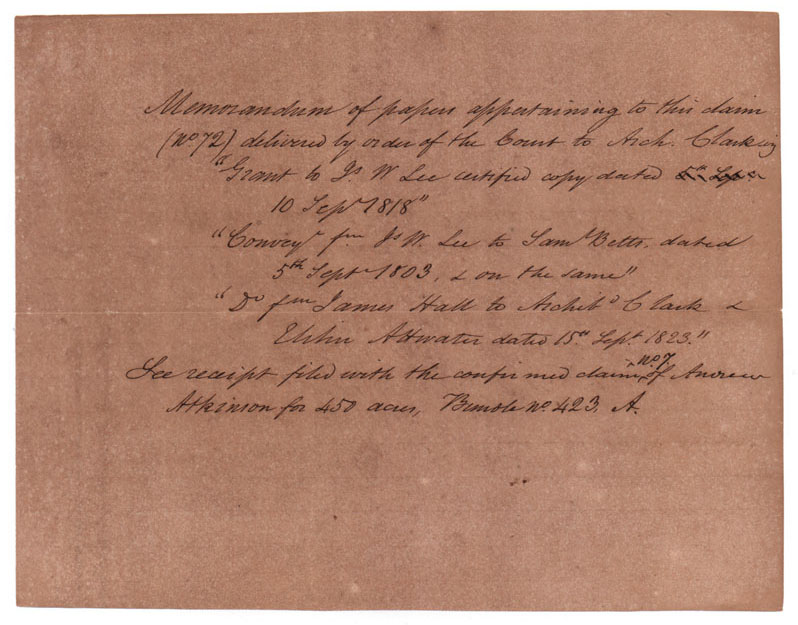 Memorandum of papers appertaining to this claim
(No 72) delivered by order of the Court to Arch. Clark viz
"Grant to Js W Lee certified copy dated
10 Sepr 1818"
"Conveyce fm Js W. Lee to Saml Betts, dated
5th Sept 1803, & on the same"
"Do fm James Hall to Archibd Clark &
Elihu Attwater dated 15th Sept 1823."
See receipt filed with the confirmed claim, No 7. of Andrew
Atkinson for 450 acres, Bundle No 423. A.